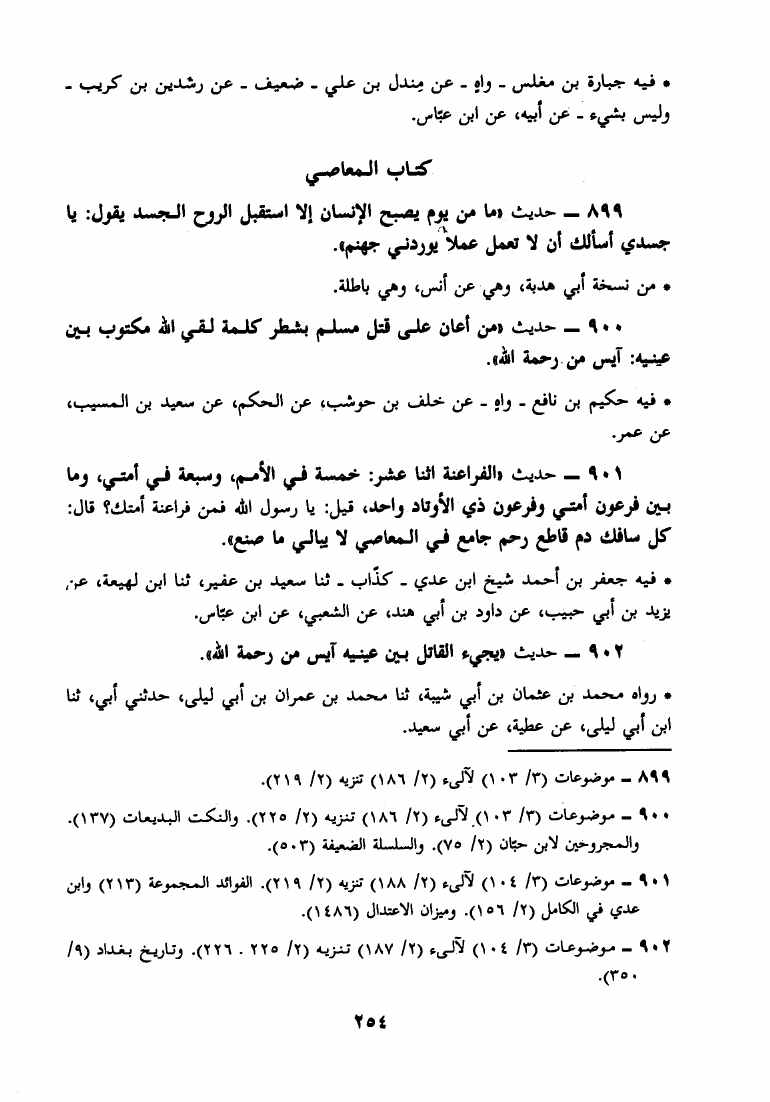 * فيه جبارة بن مغلس - واهٍ - عن مِندل بن علي - ضعيف - عن رشدين بن كريب -
وليس بشيء - عن أبيه، عن ابن عبّاس.
كتاب المعاصي
٨٩٩ — حديث «ما من يوم يصبح الإنسان إلا استقبل الروح الجسد يقول: يا
جسدي أسألك أن لا تعمل عملاً يوردني جهنم».
* من نسخة أبي هدبة، وهي عن أنس، وهي باطلة.
٩٠٠ — حديث «من أعان على قتل مسلم بشطر كلمة لقي الله مكتوب بين
عينيه: آيس من رحمة الله».
* فيه حكيم بن نافع - واهٍ - عن خلف بن حوشب، عن الحكم، عن سعيد بن المسيب،
عن عمر.
٩٠١ — حديث «الفراعنة اثنا عشر: خمسة في الأمم، وسبعة في أمتي، وما
بين فرعون أمتي وفرعون ذي الأوتاد واحد، قيل: يا رسول الله فمن فراعنة أمتك؟ قال:
كل سافك دم قاطع رحم جامع في المعاصي لا يبالي ما صنع».
* فيه جعفر بن أحمد شيخ ابن عدي - كذّاب - ثنا سعيد بن عفير، ثنا ابن لهيعة، عن
يزيد بن أبي حبيب، عن داود بن أبي هند، عن الشعبي، عن ابن عبّاس.
٩٠٢ — حديث «يجيء القاتل بين عينيه آيس من رحمة الله».
* رواه محمد بن عثمان بن أبي شيبة، ثنا محمد بن عمران بن أبي ليلى، حدثني أبي، ثنا
ابن أبي ليلى، عن عطية، عن أبي سعيد.
٨٩٩ - موضوعات (٣/ ١٠٣) لآلىء (٢/ ١٨٦) تنزيه (٢/ ٢١٩).
٩٠٠ - موضوعات (٣/ ١٠٣) لآلىء (٢/ ١٨٦) تنزيه (٢/ ٢٢٥). والنكت البديعات (١٣٧).
والمجروحين لابن حبّان (٢/ ٧٥). والسلسلة الضعيفة (٥٠٣).
٩٠١ - موضوعات (٣/ ١٠٤) لآلىء (٢/ ١٨٨) تنزيه (٢/ ٢١٩). الفوائد المجموعة (٢١٣) وابن
عدي في الكامل (٢/ ١٥٦). وميزان الاعتدال (١٤٨٦).
٩٠٢ - موضوعات (٣/ ١٠٤) لآلىء (٢/ ١٨٧) تنزيه (٢/ ٢٢٥ . ٢٢٦). وتاريخ بغداد (٩/
٣٥٠).
٢٥٤